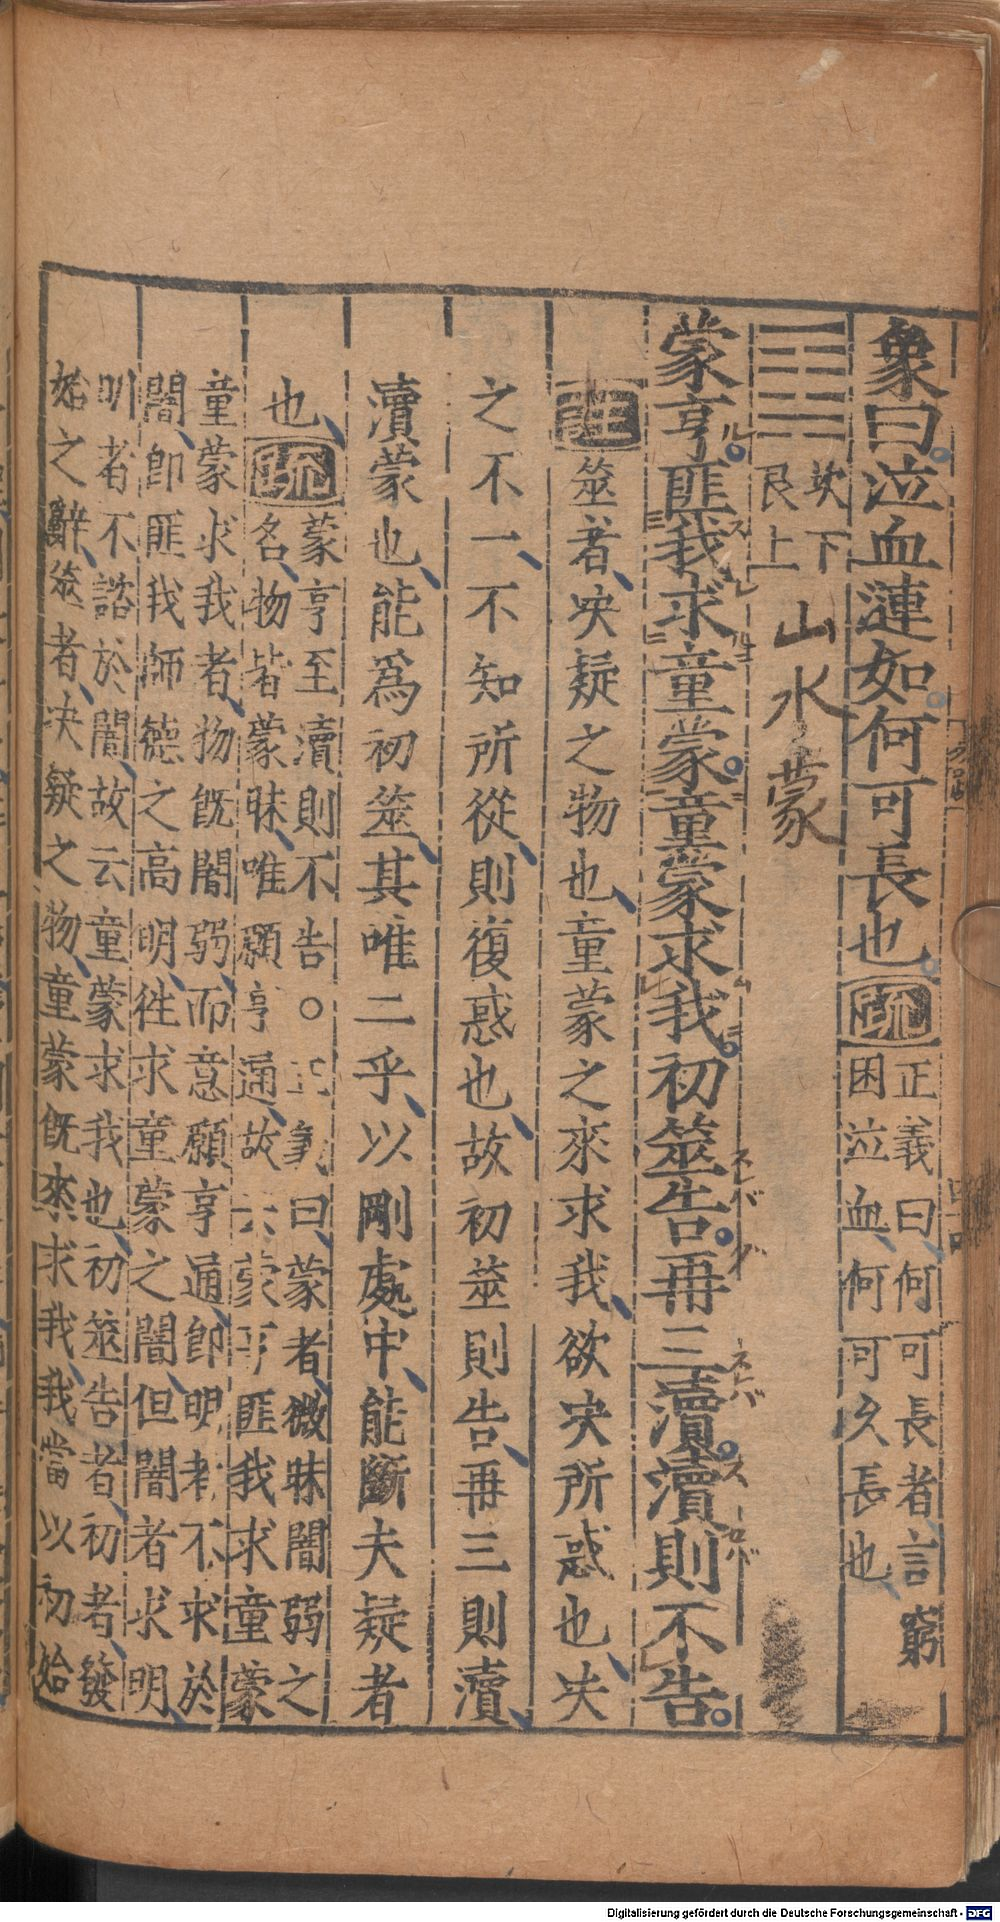 象曰泣血漣如何可長也疏正義曰何可長者言窮
困泣血何可久長也
坎下
艮上
山水蒙
蒙亨匪我求童蒙童蒙求我初筮告再三瀆瀆則不告
注筮者决疑之物也童蒙之來求我欲决所惑也决
之不一不知所從則復惑也故初筮則告再三則瀆
瀆蒙也能爲初筮其唯二乎以剛處中能斷夫疑者
也疏蒙亨至瀆則不告○正義曰蒙者微昧闇弱之
名物皆蒙昧唯願亨通故云蒙亨匪我求童蒙
童蒙求我者物既闇弱而意願亨通卽明者不求於
闇卽匪我師德之高明徃求童蒙之闇但闇者求明
明者不諮於闇故云童蒙求我也初筮告者初者發
始之辭筮者决疑之物童蒙旣來求我我當以初始
Digitalisierung gefördert durch die Deutsche Forschungsgemeinschaft - DFG